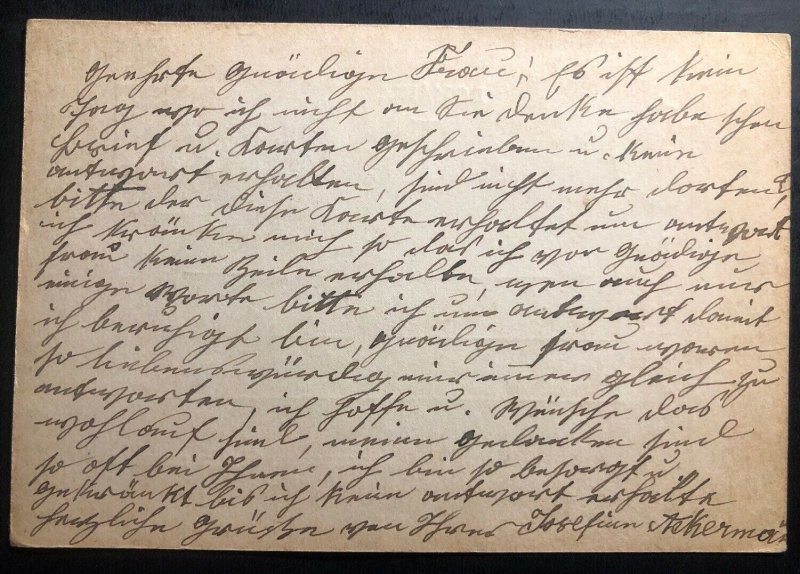 Geehrte Gnädige Frau! Es ist kein
Tag wo ich nicht an Sie denke habe schon
Brief u. Karten geschrieben u. keine
antwort erhalten, sind nicht mehr dorten?,
bitte der diese Karte erhaltet um antwort
ich kränke mich so das ich von Gnädige
Frau keine Zeile erhalte, wen auch nur
einige Worte bitte ich um antwort damit
ich beruhigt bin, Gnädige Frau waren
so liebenswürdig mir immer gleich zu
antworten, ich hoffe u. Wünsche das
wohlauf sind, meine Gedanken sind
so oft bei Ihnen, ich bin so besorgt u.
gekränkt bis ich keine antwort erhalte
herzliche Grüße von Ihrer Josefine Akerma